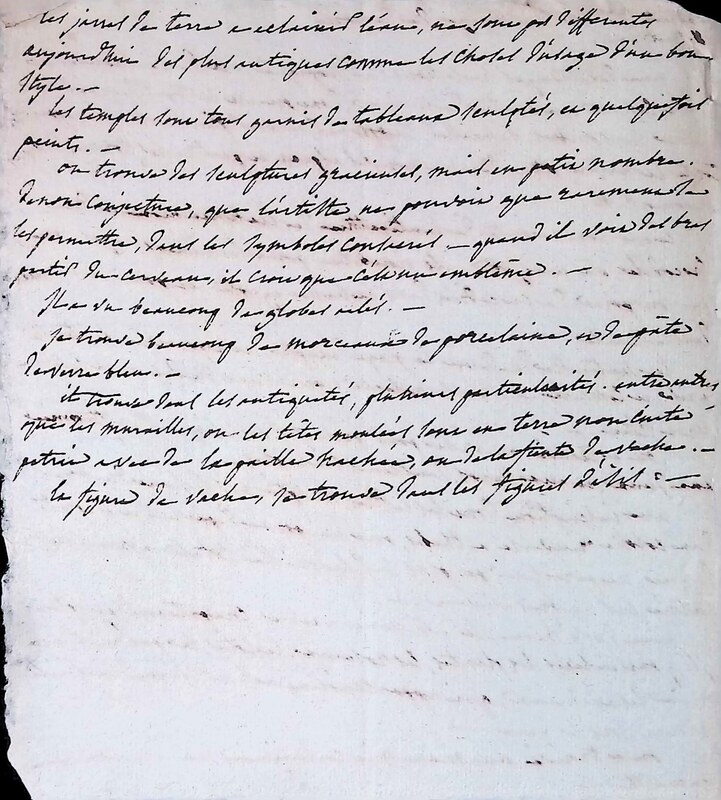 les jarres de terre a eclaircir l'eau, ne sont pas differentes
aujourdhui des plus antiques comme les choses d'usage d'un bon
style. —
les temples sont tous garnis de tableaux sculptés, et quelquefois
peints. —
on trouve des sculptures gracieuses, mais en petit nombre.
denon conjecture, que l'artiste ne pouvoit que rarement se
les permettre, dans les symboles consacrés — quand il voit des bras
partis du cerveau, il croit que c'est un emblême. —
Il a vu beaucoup de globes ailés. —
se trouve beaucoup de morceaux de porcelaine, et de pâte
de verre bleu. —
il trouve dans les antiquités, plusieurs particularités. entre autres
que les murailles, ou les têtes moulées sont en terre non cuite
petrie avec de la paille hachée, ou de la fiente de vache. —
la figure de vache, se trouve dans les figures d'isis —